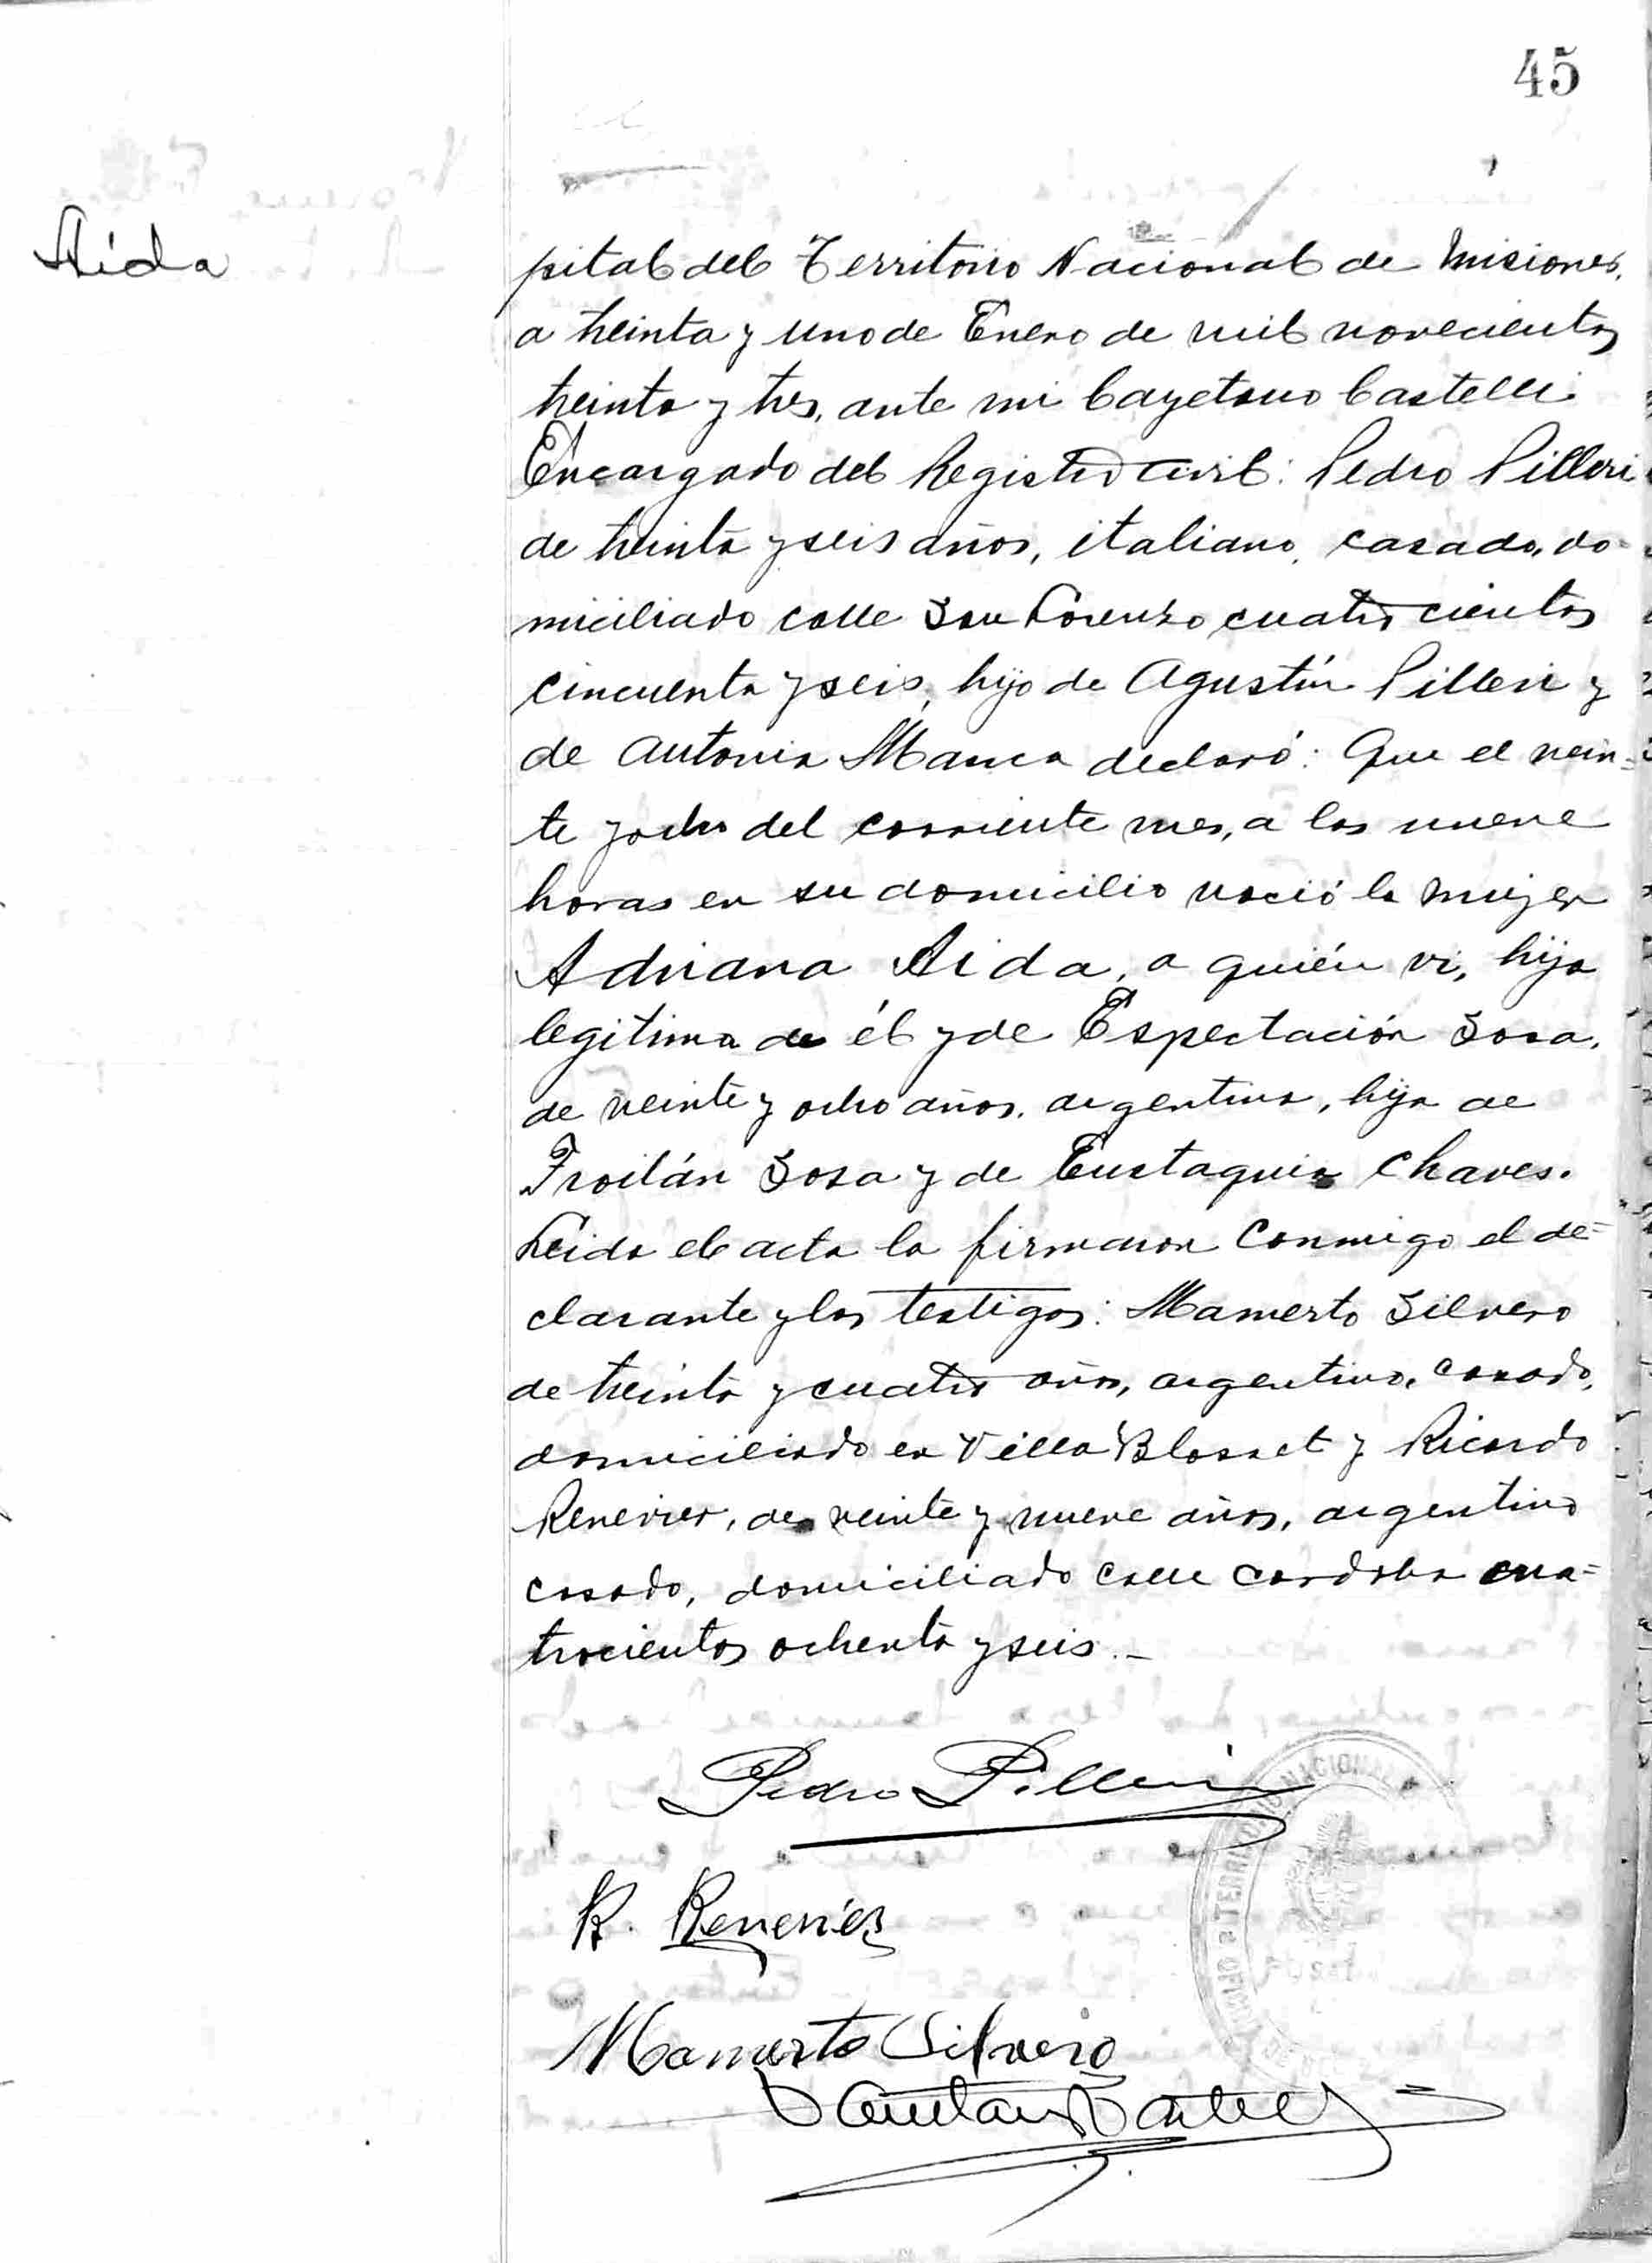 45
Aída
pital del Territorio Nacional de Misiones,
a treinta y uno de Enero de mil novecientos
treinta y tres, ante mi Cayetano Castelli
Encargado del Registro Civil: Pedro Pilleri
de treinta y seis años, italiano, casado, do-
miciliado calle San Lorenzo cuatrocientos
cincuenta y seis, hijo de Agustín Pilleri y
de Antonia Manca declaró: Que el vein=
te y ocho del corriente mes, a las nueve
horas en su domicilio nació la mujer
Adriana Aida, a quién vi, hija
legitima de él y de Espectación Sosa,
de veinte y ocho años, argentina, hija de
Froilán Sosa y de Eustaquia Chaves.
Leida el acta la firmaron conmigo el de=
clarante y los testigos: Mamerto Silvero
de treinta y cuatro años, argentino, casado,
domiciliado en Villa Blosset y Ricardo
Renevier, de veinte y nueve años, argentino
casado, domiciliado calle Cordoba cua=
trocientos ochenta y seis.-
Pedro Pilleri
R. Renevier
Mamerto Silvero